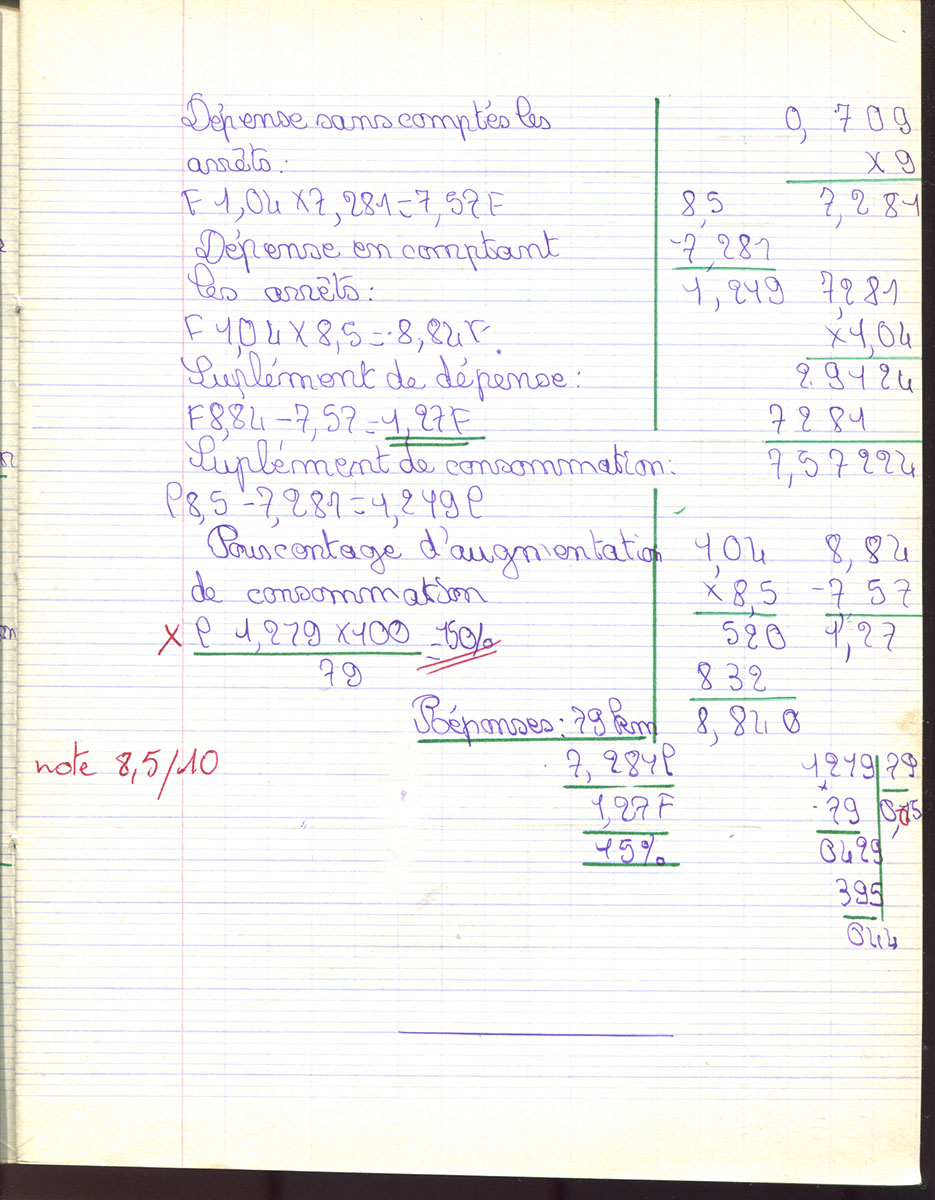 Dépense sans comptés les
arrêts:
F 1,04 X 7, 281 = 7,57F
Dépense en comptant
les arrêts:
F 1,04 X 8,5 = 8,84F.
Suplément de dépense:
F8,84 - 7,57 = 1,27F
Suplément de consommation:
l 8,5 - 7,281 = 1,219 l
Pourcentage d'augmentation
de consommation
X l 1,219 X 100 = 150%
79
Réponses: 79 km
7, 281 l
1,27F
15%
note 8,5/10
0, 709
X 9
7, 281
8,5
-7, 281
1, 219
7,281
X 1,04
29124
7281
7,57224
1,04
X 8,5
520
832
8,840
8,84
-7,57
1,27
1219 79
-79 0,15
0429
395
044